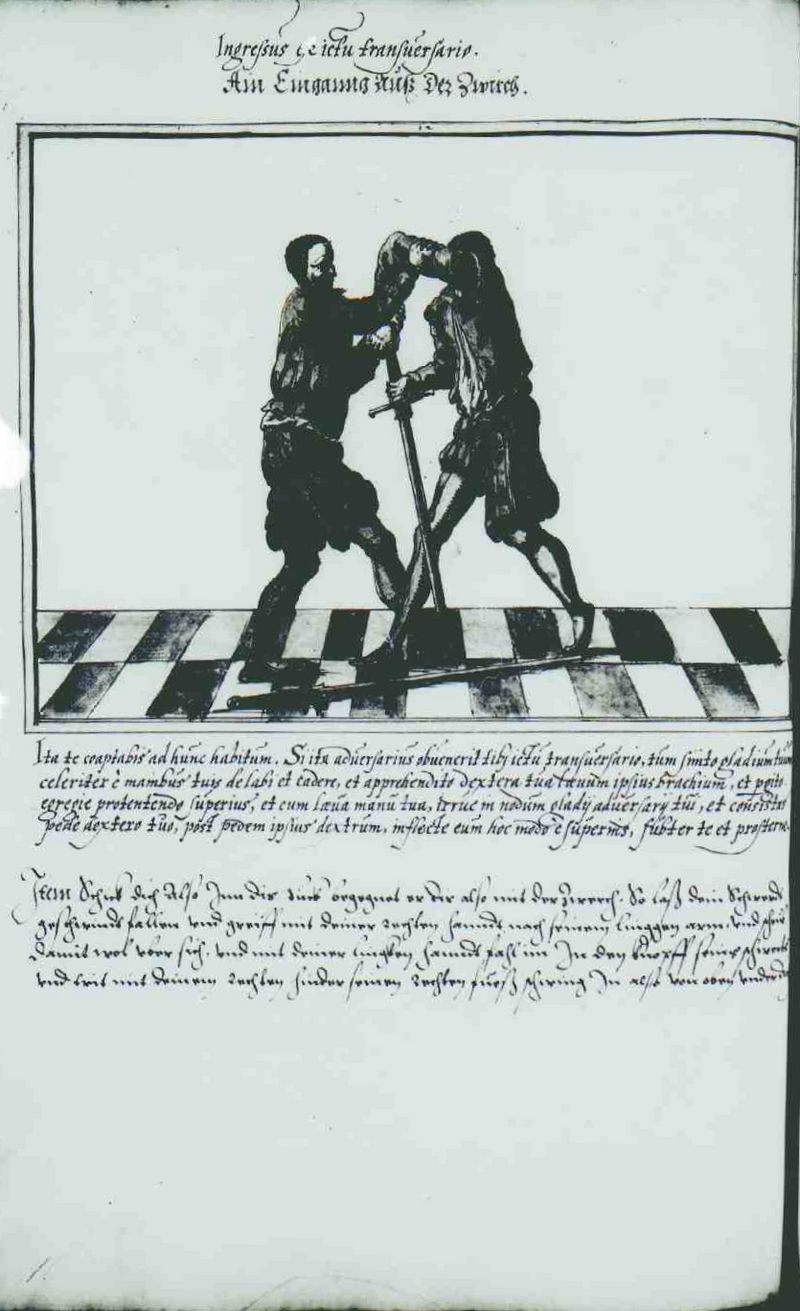 Ingressus ex ictu transuersario.
Ain Einganng Auß Der Zwirch.
Ita te coaptabis ad hunc habitum. Si ita aduersarius obuenerit tibj ictu transuersario, tum sinito gladium tuum
celeriter è manibus tuis delabi et cadere, et apprehendito dextera tua læuum ipsius brachium, et
egregie protentendo superius, et cum læua manu tua, irrue in nodum gladij aduersarij tui, et consistas
pede dextero tuo, post pedem ipsius dextrum, inflecte eum hoc modo è supernis, subter te et prosterne.
Item Schick dich Also Inn dis stuck begegnet er dir also mit der Zwerch. So laß dein Schwerdt
geschwindt fallen vnd greiff mit deiner rechten hanndt nach seinem linggen arm, vnd
damit wol vber sich, vnd mit deiner linggken hanndt fahl im In den knopff seines schwerdts
vnd trit mit deinem rechten hinder seinen rechten fuesß schwing In also von oben